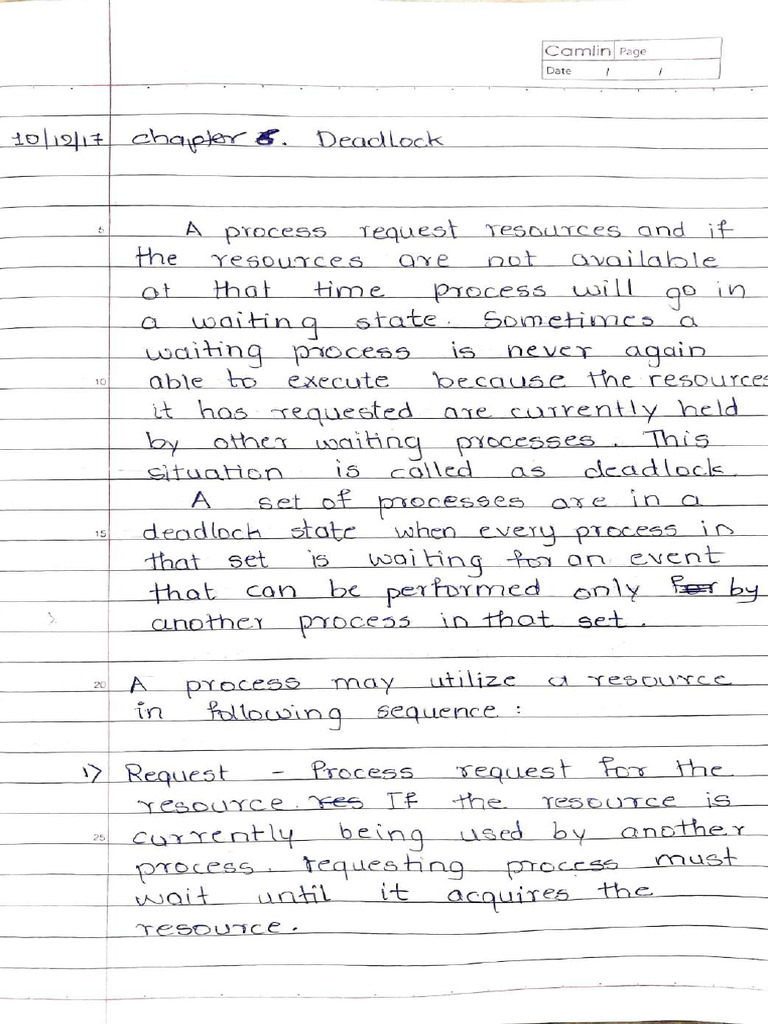 Camlin Page
Date / /
10/12/17 chapter 5. Deadlock
5 A process request resources and if
the resources are not available
at that time process will go in
a waiting state. Sometimes a
waiting process is never again
10 able to execute because the resources
it has requested are currently held
by other waiting processes. This
situation is called as deadlock.
A set of processes are in a
15 deadlock state when every process in
that set is waiting for an event
that can be performed only for by
another process in that set.
20 A process may utilize a resource
in following sequence :
1) Request - Process request for the
resource. res If the resource is
25 currently being used by another
process. requesting process must
wait until it acquires the
resource.